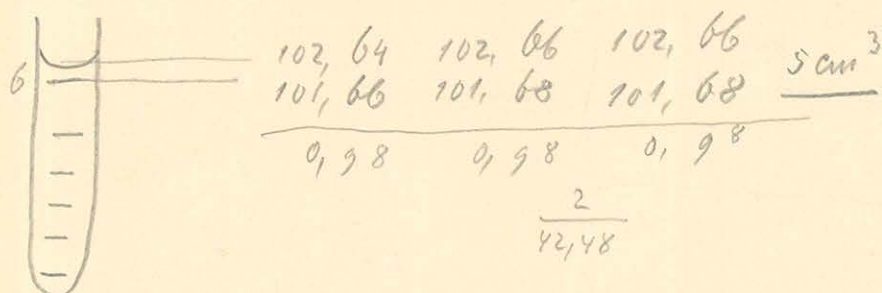 102,64 102,66 102,66
6 101,66 101,68 101,68 5 cm³
0,98 0,98 0,98
2
42,48